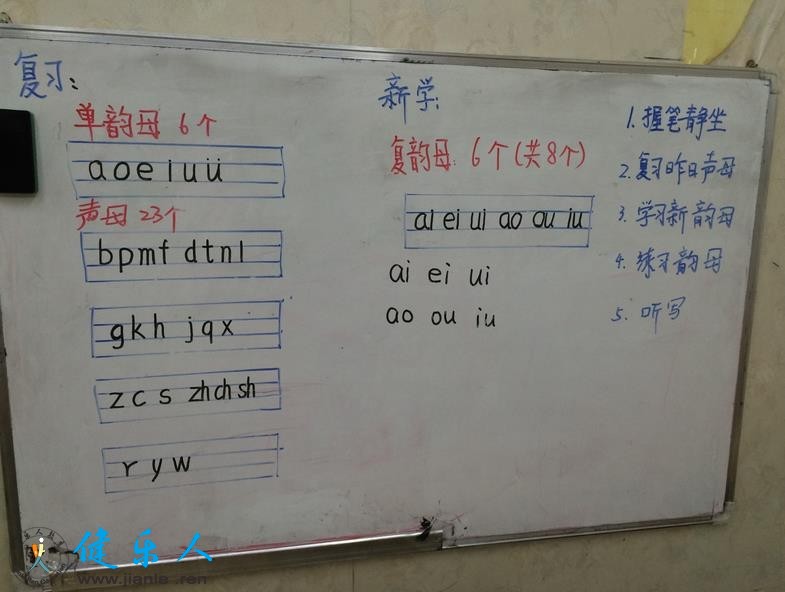 复习:
单韵母 6个
a o e i u ü
声母 23个
b p m f d t n l
g k h j q x
z c s zh ch sh
r y w
新学:
复韵母: 6个(共8个)
ai ei ui ao ou iu
ai ei ui
ao ou iu
1. 握笔静坐
2. 复习昨日声母
3. 学习新韵母
4. 练习韵母
5. 听写
健乐人
www.jianle.ren